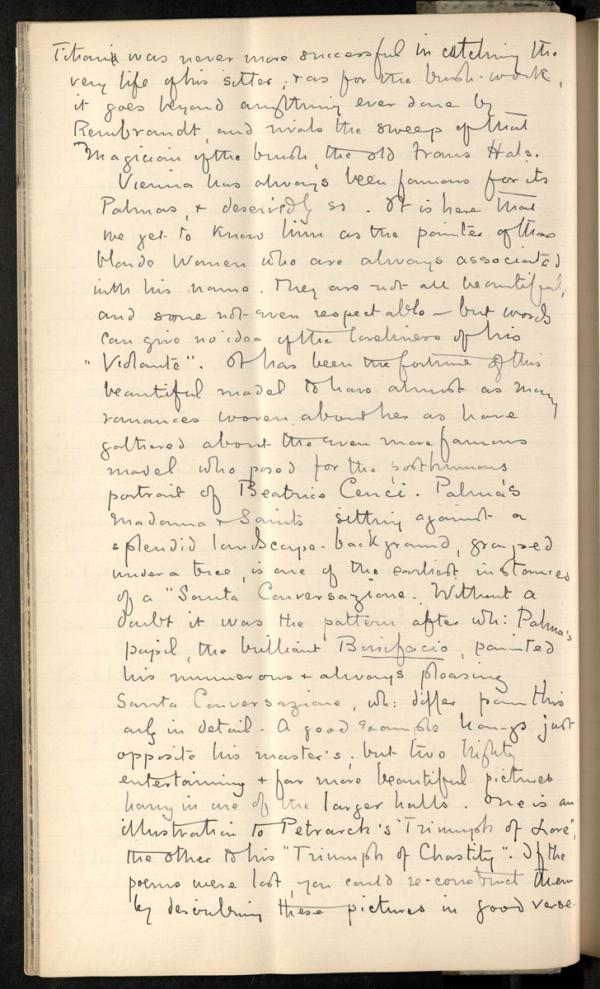 Titian was never more successful in catching the
very life of his sitter, & as for the brush-work,
it goes beyond anything ever done by
Rembrandt, and rivals the sweep of that
magician of the brush, the old Frans Hals.
Vienna has always been famous for its
Palmas, & deservedly so. It is here that
we get to know him as the painter of those
blonde women who are always associated
with his name. They are not all beautiful,
and some not even respectable – but words
can give no idea of the loveliness of his
"Violante". It has been the fortune of this
beautiful model to have almost as many
romances woven about her as have
gathered about the even more famous
model who posed for the posthumous
portrait of Beatrice Cenci. Palma's
Madonna & Saints sitting against a
splendid landscape-background, grouped
under a tree, is one of the earliest instances
of a "Santa Conversazione. Without a
doubt it was the pattern after wh: Palma's
pupil, the brilliant Bonifacio, painted
his numerous & always pleasing
Santa Conversazione, wh: differ from this
only in detail. A good example hangs just
opposite his master's; but two highly
entertaining & far more beautiful pictures
hang in one of the larger halls. One is an
illustration to Petrarch's "Triumph of Love",
the other to his "Triumph of Chastity". If the
poems were lost, you could re-construct them
by describing these pictures in good verse.